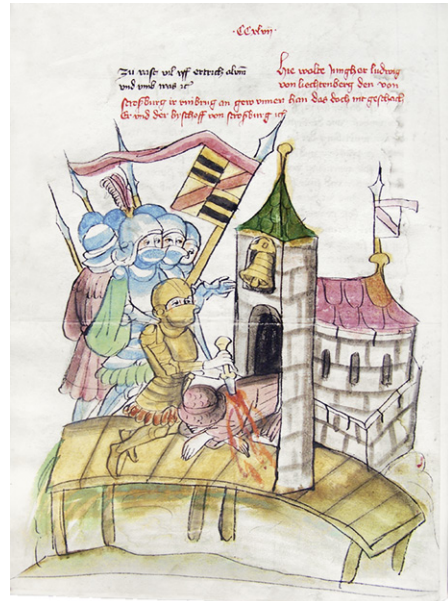 ·CCxlvij·
zu vast vil vff ertrich
vnd vmb was ir
Hie wolte Jungher ludwig
von liechtenberg den von
stroßburg ir einbrug an gewinnen das doch nit geschach
Er vnd der byschoff von stroßburg